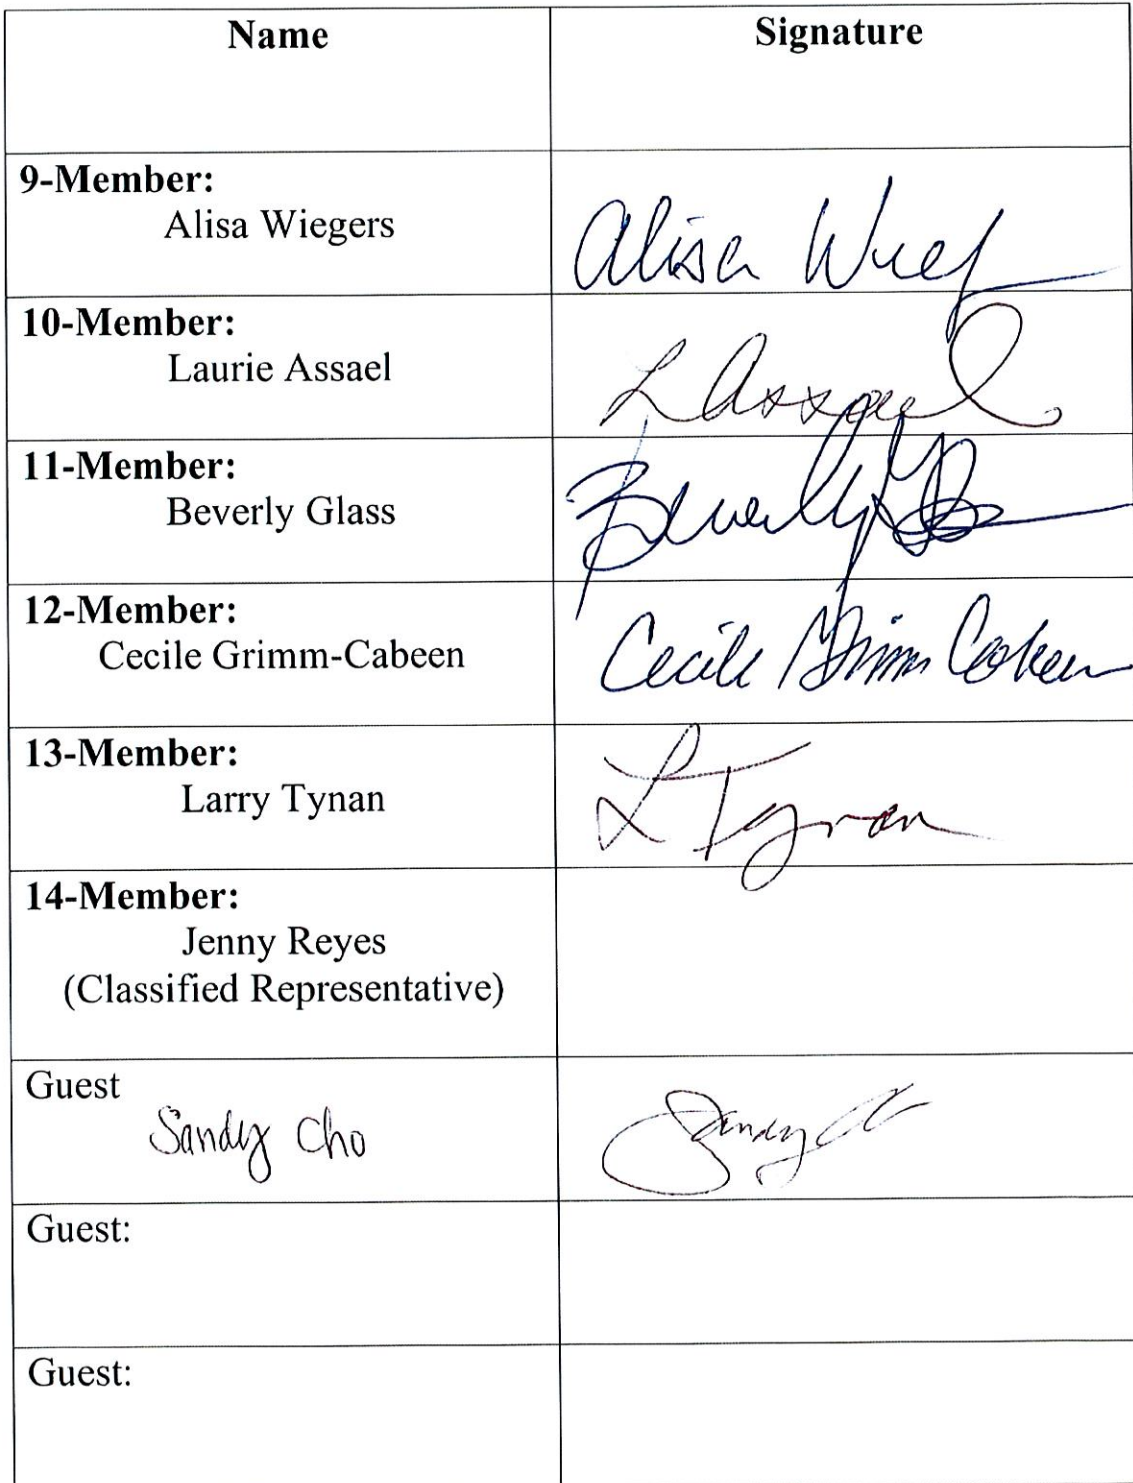 Name Signature
9-Member:
Alisa Wiegers
Alisa
10-Member:
Laurie Assael
L Assael
11-Member:
Beverly Glass
Beverly
12-Member:
Cecile Grimm-Cabeen
Cecile Grimm Cabeen
13-Member:
Larry Tynan
L Tynan
14-Member:
Jenny Reyes
(Classified Representative)
Guest
Sandy Cho
Sandy
Guest:
Guest: